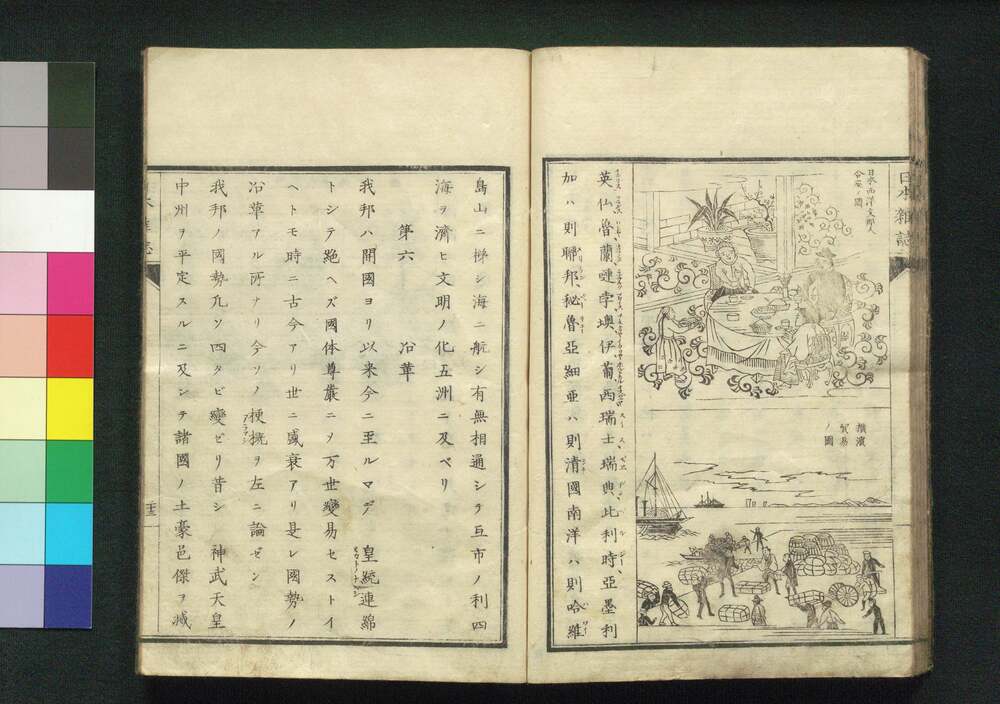 日本雑誌
日本西洋支那人
会席ノ図
横濱
貿易
ノ圖
英仏魯蘭嗹孛墺伊葡西瑞士瑞典比利時亞墨利
加ハ則聯邦、秘魯亞細亜ハ則清國南洋ハ則哈維
島山ニ梯シ海ニ航シ有無相通シテ互市ノ利四
海ヲ濟ヒ文明ノ化五洲ニ及ベリ
第六 沿革
我邦ハ開國ヨリ以来今ニ至ルマデ 皇統連綿
トシテ絶ヘズ國体尊嚴ニシテ万世變易セストイ
ヘトモ時ニ古今アリ世ニ盛衰アリ是レ國勢ノ
沿革アル所ナリ今ソノ梗概ヲ左ニ論ゼン
我邦ノ國勢凢ソ四タビ變ビリ昔シ 神武天皇
中州ヲ平定スルニ及ンテ諸國ノ土豪邑傑ヲ滅